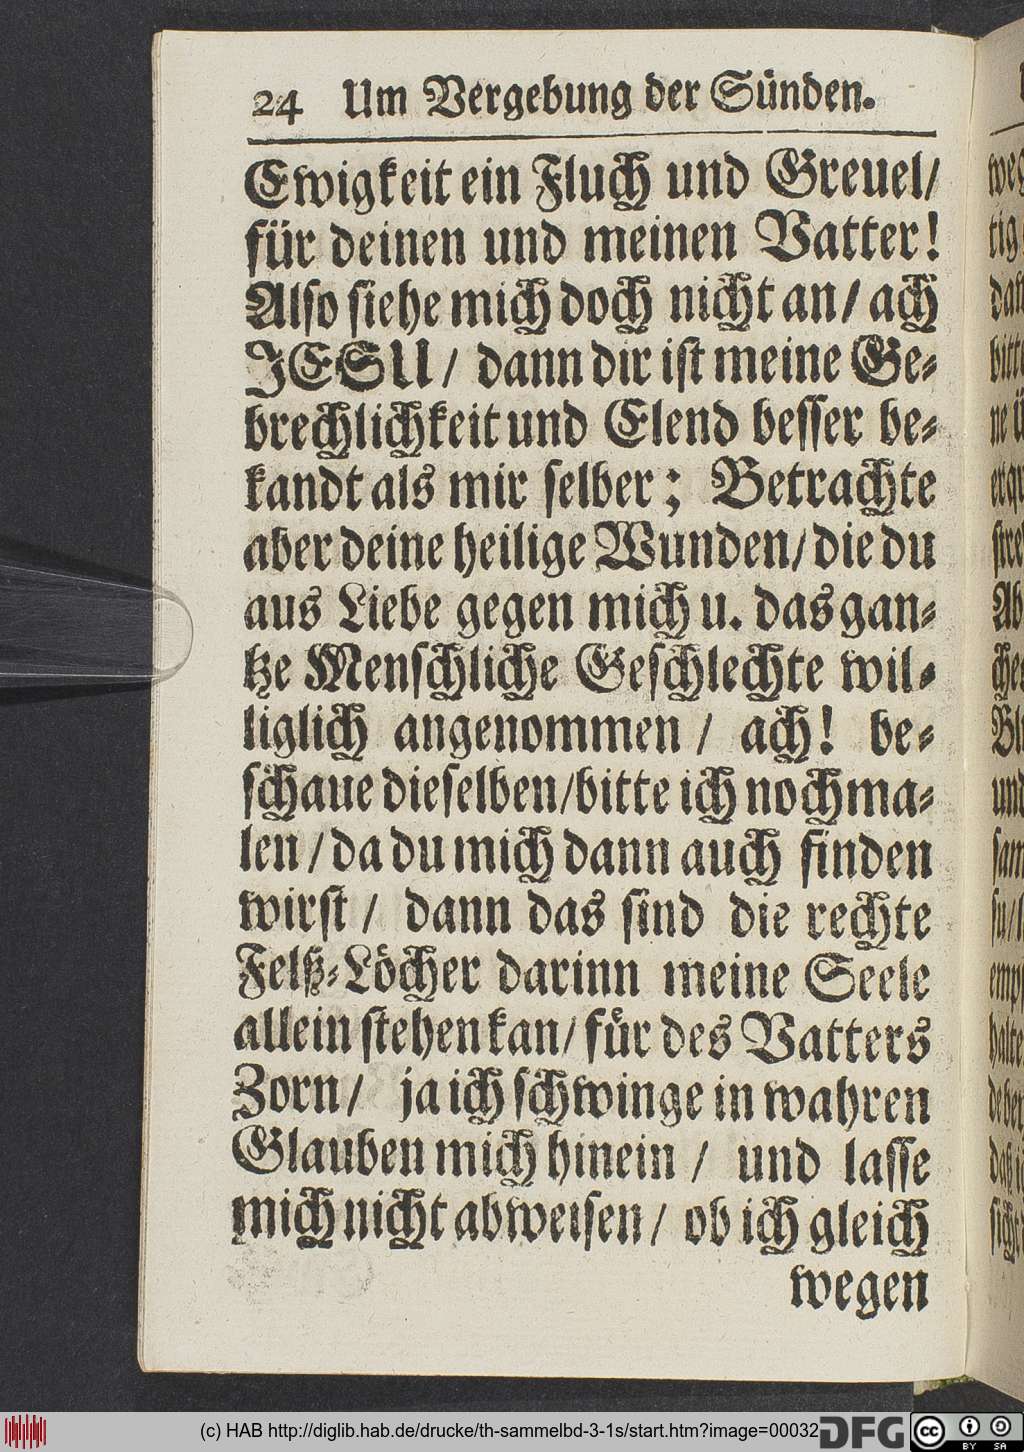 24 Um Vergebung der Sünden.
Ewigkeit ein Fluch und Greuel/
für deinen und meinen Vatter!
Also siehe mich doch nicht an/ ach
JESU/ dann dir ist meine Ge-
brechlichkeit und Elend besser be-
kandt als mir selber; Betrachte
aber deine heilige Wunden/ die du
aus Liebe gegen mich u. das gan-
tze Menschliche Geschlechte wil-
liglich angenommen/ ach! be-
schaue dieselben/ bitte ich nochma-
len/ da du mich dann auch finden
wirst/ dann das sind die rechte
Felß-Löcher darinn meine Seele
allein stehen kan/ für des Vatters
Zorn/ ja ich schwinge in wahren
Glauben mich hinein/ und lasse
mich nicht abweisen/ ob ich gleich
wegen
(c) HAB http://diglib.hab.de/drucke/th-sammelbd-3-1s/start.htm?image=00032
DFG
cc BY SA